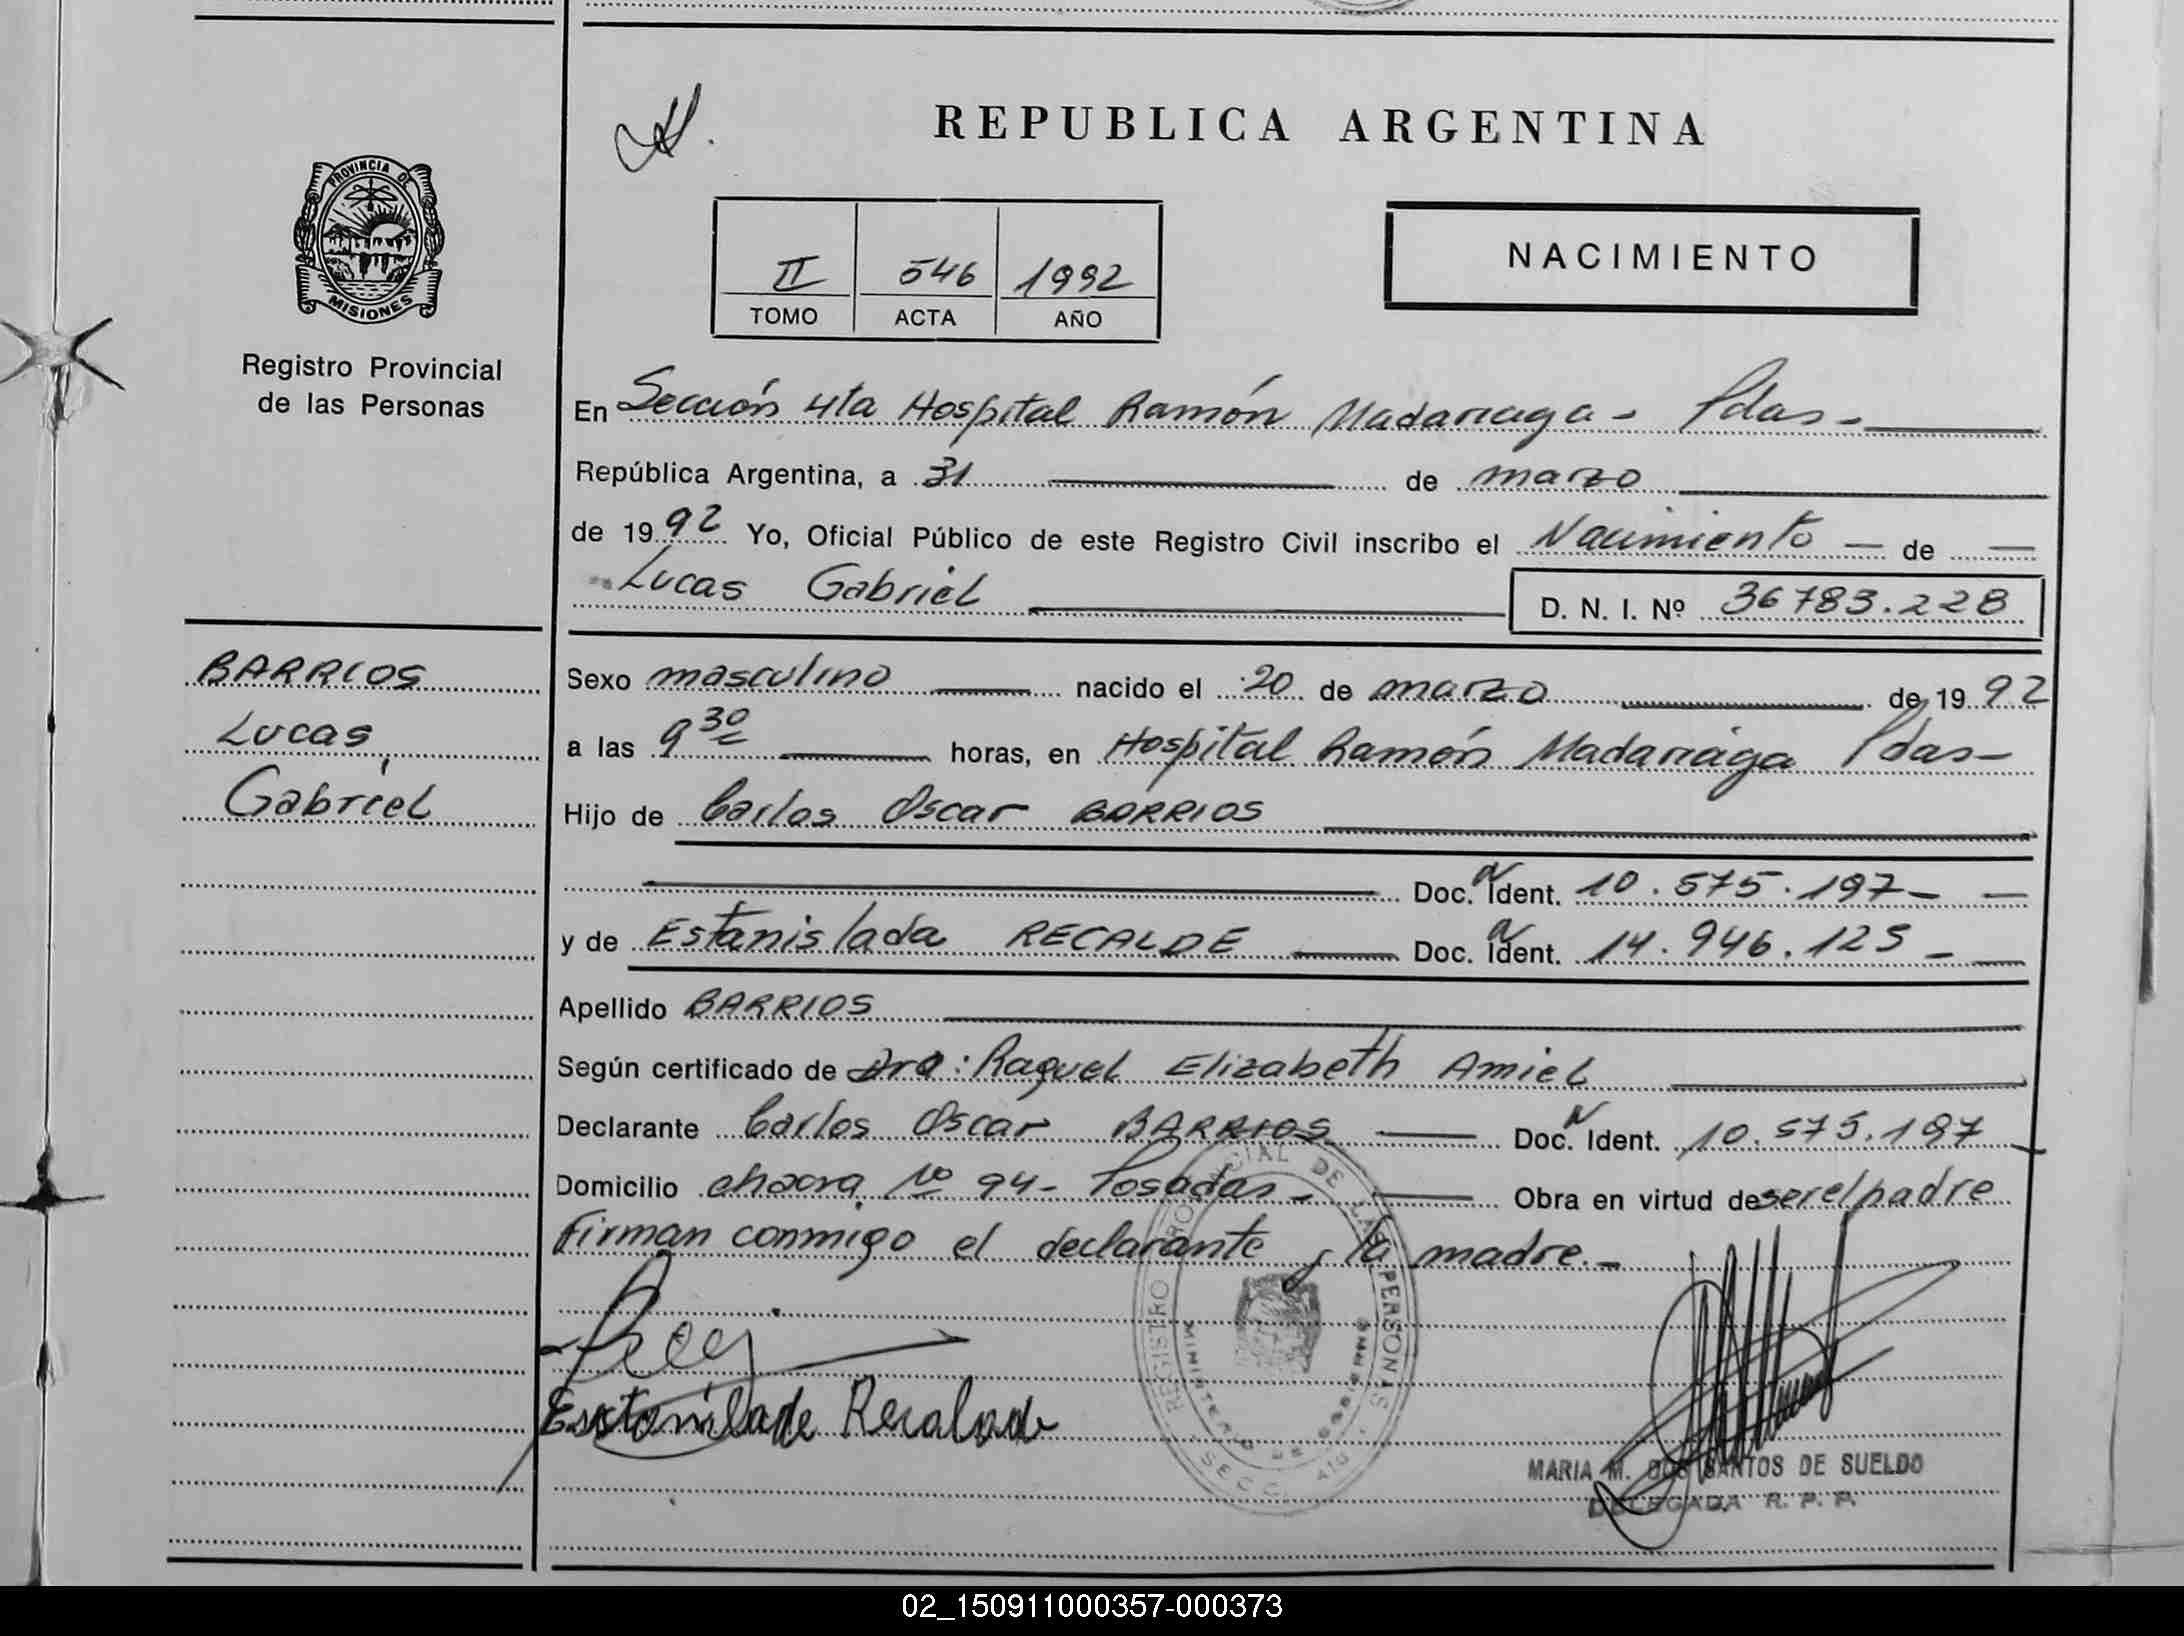 REPUBLICA ARGENTINA
PROVINCIA DE
MISIONES
Registro Provincial
de las Personas
II 546 1992
TOMO ACTA AÑO
NACIMIENTO
En Sección 4ta Hospital Ramón Madariaga - Pdas -
República Argentina, a 31 de marzo
de 1992 Yo, Oficial Público de este Registro Civil inscribo el Nacimiento — de —
Lucas Gabriel D. N. I. Nº 36783.228
BARRIOS
Lucas
Gabriel
Sexo masculino nacido el 20 de marzo de 1992
a las 9 30 horas, en Hospital Ramón Madariaga Pdas -
Hijo de Carlos Oscar BARRIOS
Doc. N Ident. 10.575.197 -
y de Estanislada RECALDE Doc. N Ident. 14.946.123 -
Apellido BARRIOS
Según certificado de Dra: Raquel Elizabeth Amiel
Declarante Carlos Oscar BARRIOS Doc. N Ident. 10.575.197
Domicilio chacra Nº 94 - Posadas - Obra en virtud de ser el padre
Firman conmigo el declarante y la madre. -
REGISTRO PROVINCIAL DE LAS PERSONAS
MINISTERIO DE GOBIERNO
SECC. 4TA
Esstonilade Recalade
MARIA M. DOS SANTOS DE SUELDO
DELEGADA R. P. P.
02_150911000357-000373